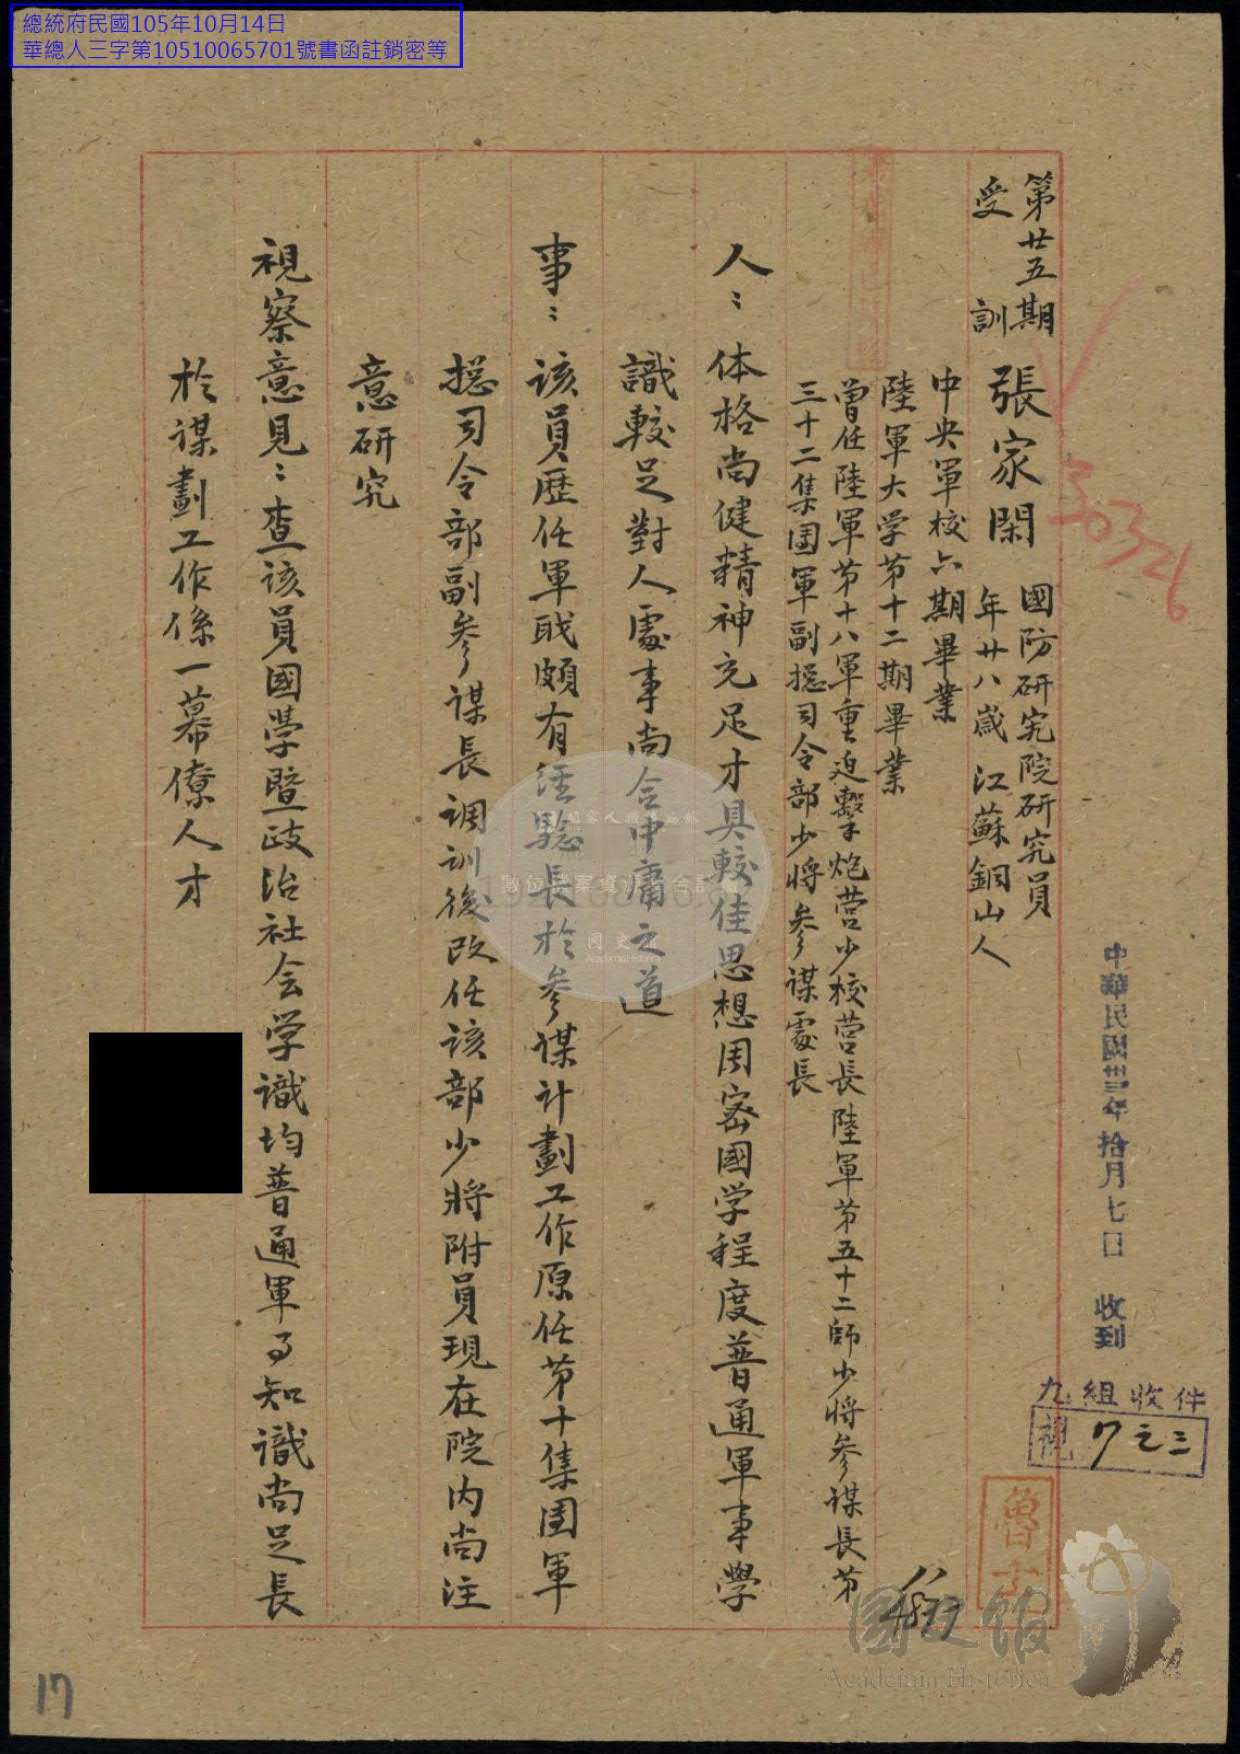 總統府民國105年10月14日
華總人三字第10510065701號書函註銷密等
中華民國卅三年拾月七日 收到
九組收件
視 7之三
30326
第廿五期
受訓
張家閑
國防研究院研究員
年廿八歲 江蘇銅山人
中央軍校六期畢業
陸軍大学第十二期畢業
曾任陸軍第十八軍重迫擊炮营少校营長陸軍第五十二師少將參謀長第
三十二集团軍副總司令部少將參謀處長
人：体格尚健精神充足才具較佳思想周密國学程度普通軍事學
識較足對人處事尚合中庸之道
事：该員歷任軍職頗有经驗長於參謀计劃工作原任第十集团軍
總司令部副參谋長调訓後改任该部少將附員現在院内尚注
意研究
視察意見：查该員國学暨政治社会学識均普通軍事知識尚足長
於谋劃工作係一幕僚人才
國史館
Academia Historica
17